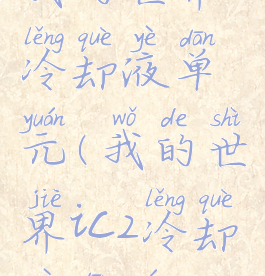 lěng què yè dān
冷却液单
yuán wǒ de shì
元(我的世
jiè lěng què
界ic2冷却